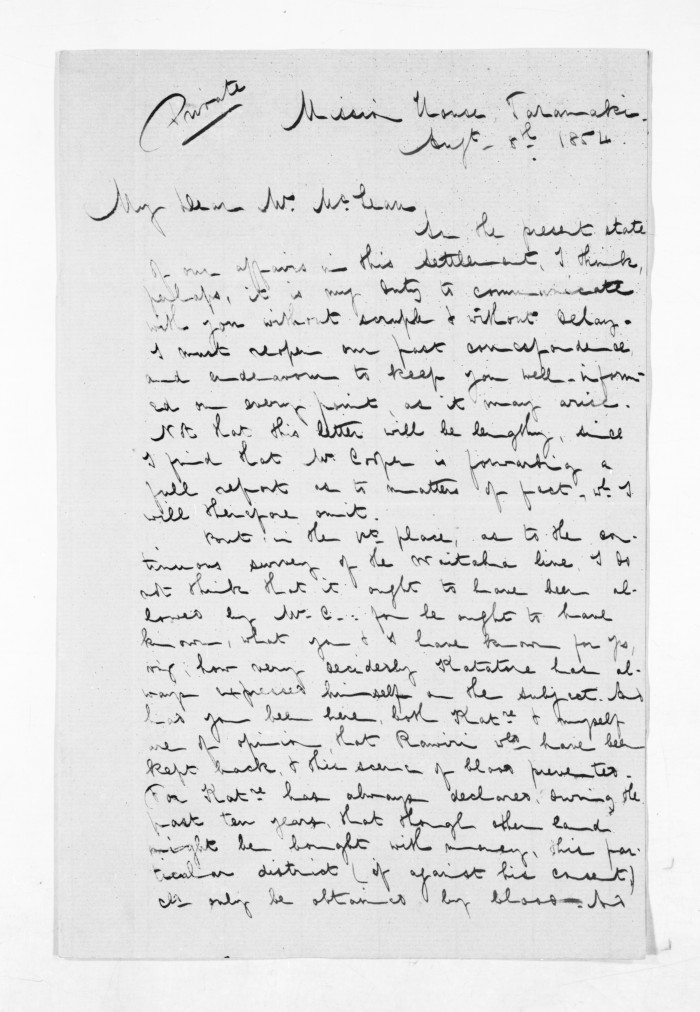 Private
Mission House, Taranaki.
Augt. 8th. 1854.
My dear Mr. McLean,
In the present state
of our affairs in this settlement, I think,
perhaps, it is my duty to communicate
with you without scruple & without delay.
I must reopen our past correspondence,
and endeavour to keep you well-inform-
ed on every point, as it may arise.
Not that this letter will be lengthy, since
I find that Mr. Cooper is forwarding a
full report as to matters of fact, wh. I
will therefore omit.
But in the 1st place, as to the con-
tinuous survey of the Waitaha line, I do
not think that it ought to have been al-
lowed by Mr. C.: for he ought to have
known, what you & I have known for yrs,
viz; how very decidedly Katatore has al-
ways expressed himself on the subject. And
had you been here, both Katre & myself
are of opinion, that Rawiri wld have been
kept back, & this scene of blood prevented.
For Katre has always declared, during the
past ten years, that though other land
might be bought with money, this par-
ticular district (if against his consent)
cld only be obtained by blood. And